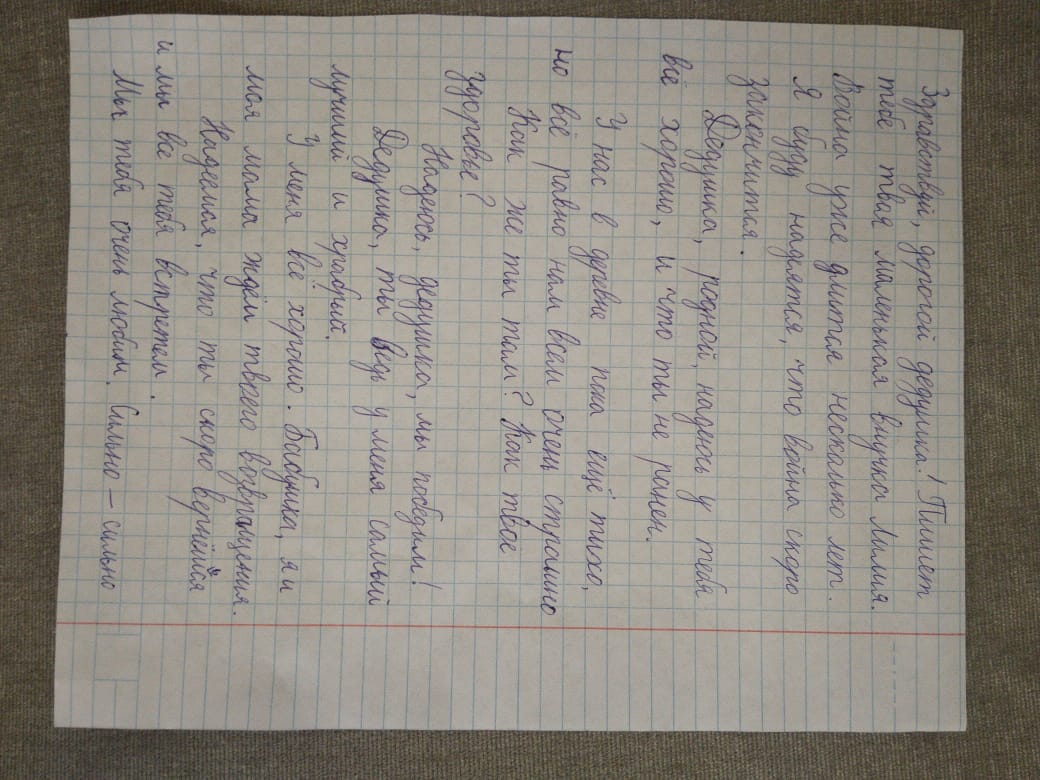 Здравствуй, дорогой дедушка! Пишет
тебе твоя маленькая внучка Лилия.
Война уже длится несколько лет.
Я буду надеятся, что война скоро
закончится.
Дедушка, родной, надеюсь у тебя
всё хорошо, и что ты не ранен.
У нас в деревне пока ещё тихо,
но всё равно нам всем очень страшно
Как же ты там? Как твое
здоровье?
Надеюсь, дедушка, мы победим!
Дедушка, ты ведь у меня самый
лучший и храбрый.
У меня всё хорошо. Бабушка, я и
моя мама ждём твоего возвращения.
Надеемся, что ты скоро вернёшся
и мы все тебя встретем.
Мы тебя очень любим. Сильно – сильно